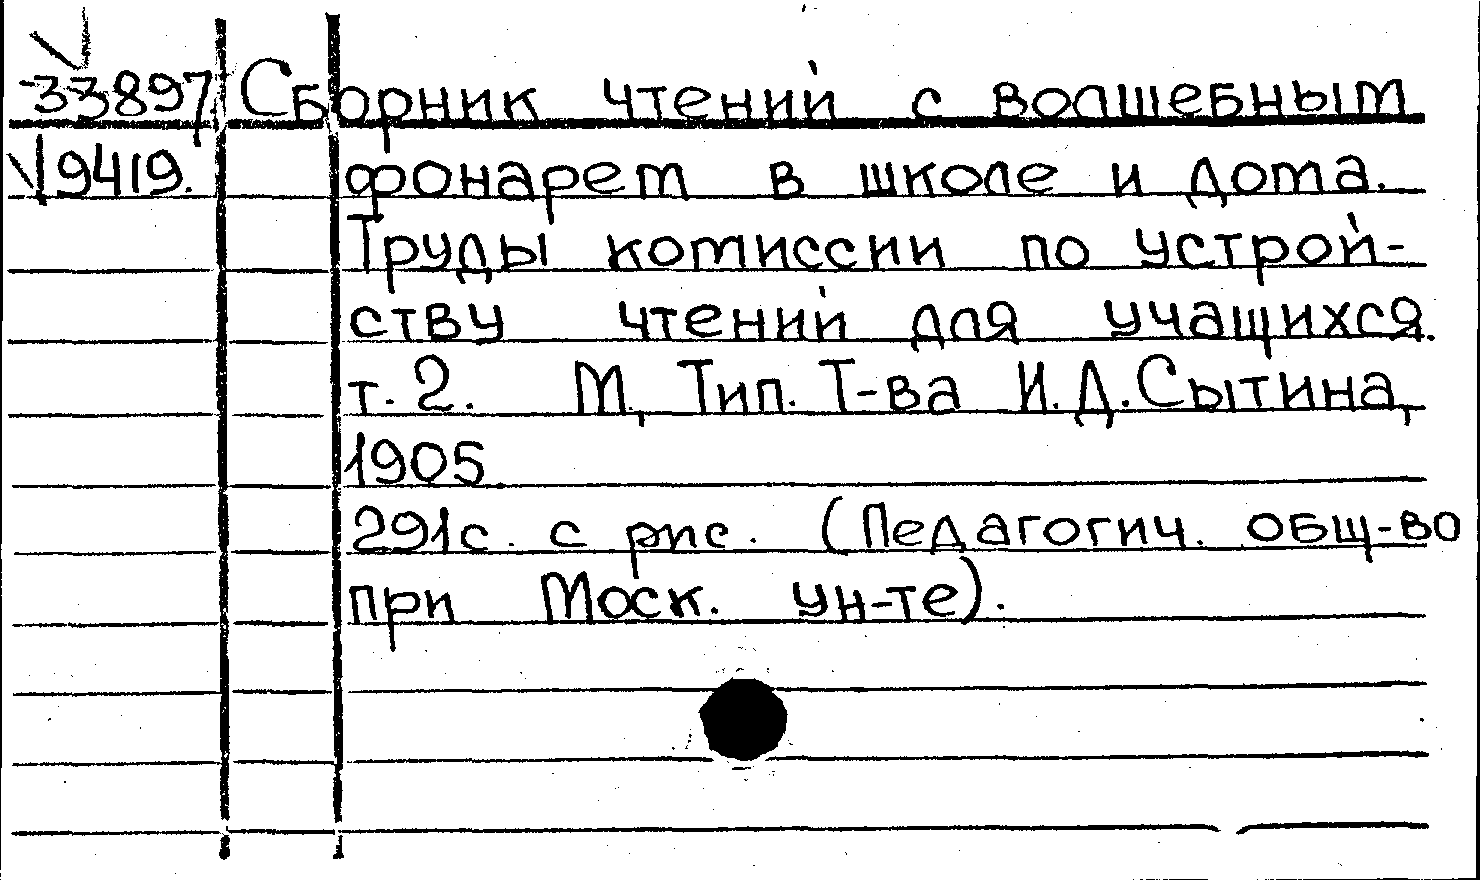 33897, Сборник чтений с волшебным
19419. фонарем в школе и дома.
Труды комиссии по устрой-
ству чтений для учащихся.
т. 2. М, Тип. Т-ва И. Д. Сытина,
1905.
291с. с рис. (Педагогич. общ-во
при Моск. ун-те).